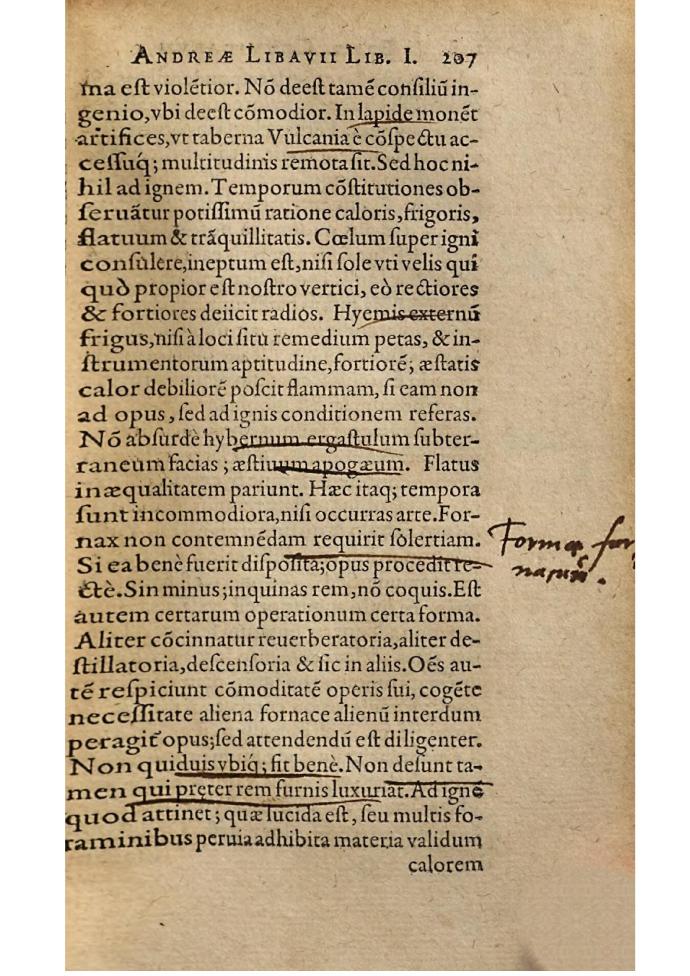 ANDREÆ LIBAVII LIB. I. 207
ma eſt violẽtior. Nõ deeſt tamẽ conſiliũ in-
genio, vbi deeſt cõmodior. In lapide monẽt
artifices, vt taberna Vulcania è cõſpectu ac-
ceſſuq́; multitudinis remota ſit. Sed hoc ni-
hil ad ignem. Temporum cõſtitutiones ob-
ſeruãtur potiſſimũ ratione caloris, frigoris,
flatuum & trãquillitatis. Cœlum ſuper igni
conſulere, ineptum eſt, niſi ſole vti velis qui
quò propior eſt noſtro vertici, eò rectiores
& fortiores deiicit radios. Hyemis externũ
frigus, niſi à loci ſitu remedium petas, & in-
ſtrumentorum aptitudine, fortiorẽ; æſtatis
calor debiliorẽ poſcit flammam, ſi eam non
ad opus, ſed ad ignis conditionem referas.
Nõ abſurdè hybernum ergaſtulum ſubter-
raneum facias; æſtiuum apogæum. Flatus
inæqualitatem pariunt. Hæc itaq; tempora
ſunt incommodiora, niſi occurras arte. For-
nax non contemnẽdam requirit ſolertiam.
Si ea benè fuerit diſpoſita; opus procedit re-
ctè. Sin minus; inquinas rem, nõ coquis. Eſt
autem certarum operationum certa forma.
Aliter cõcinnatur reuerberatoria, aliter de-
ſtillatoria, deſcenſoria & ſic in aliis. Oẽs au-
tẽ reſpiciunt cõmoditatẽ operis ſui, cogẽte
neceſſitate aliena fornace alienũ interdum
peragit́ opus; ſed attendendũ eſt diligenter.
Non quiduis vbiq; fit benè. Non deſunt ta-
men qui pręter rem furnis luxuriãt. Ad ignẽ
quod attinet; quæ lucida eſt, ſeu multis fo-
raminibus peruia adhibita materia validum
calorem
Formæ for